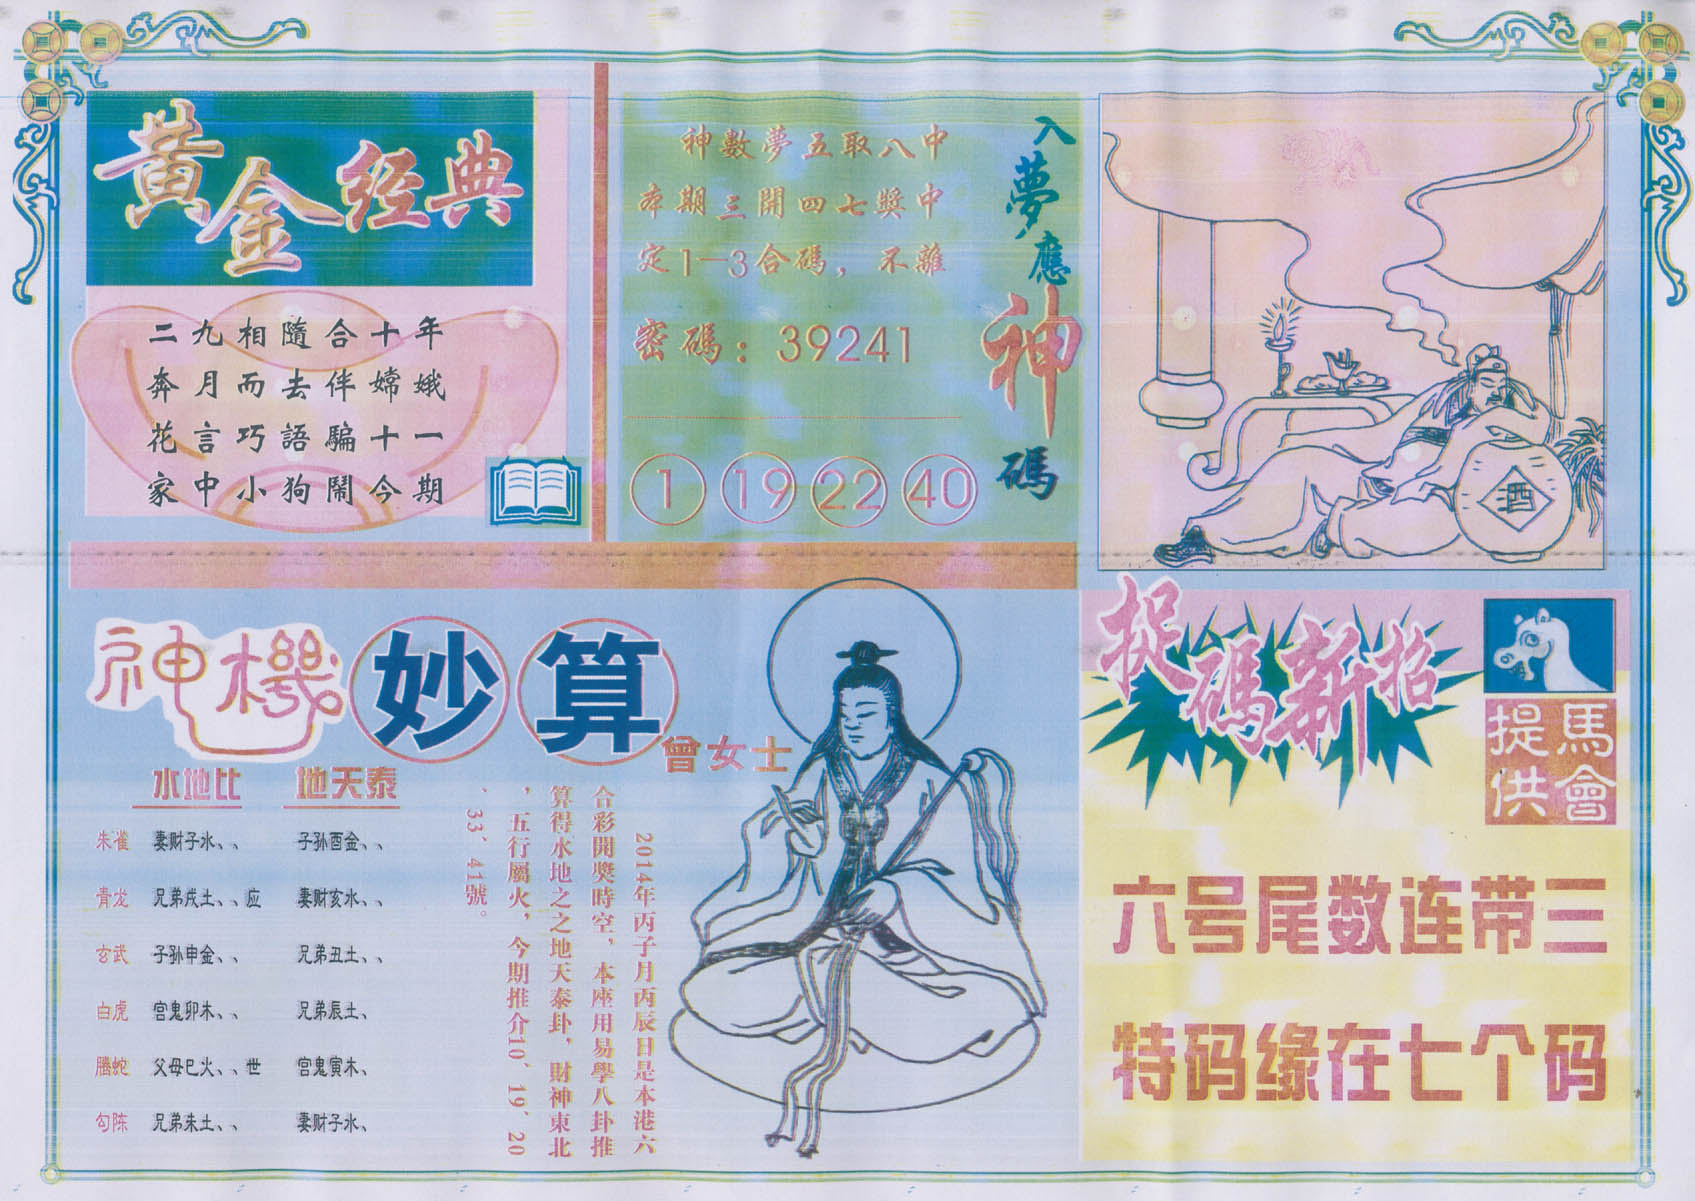 黃金经典
二九相隨合十年
奔月而去伴嫦娥
花言巧語騙十一
家中小狗鬧今期
入夢應神碼
神數夢五取八中
本期三開四七獎中
定1-3合碼，不離
密碼：39241
1 19 22 40
酉
神機妙算
曾女士
水地比 地天泰
朱雀 妻财子水、、 子孙酉金、、
青龙 兄弟戌土、、应 妻财亥水、、
玄武 子孙申金、、 兄弟丑土、、
白虎 宫鬼卯木、、 兄弟辰土、
腾蛇 父母巳火、、世 宫鬼寅木、
勾陈 兄弟朱土、、 妻财子水、
2014年丙子月丙辰日是本港六
合彩開獎時空，本座用易學八卦推
算得水地之之地天泰卦，財神東北
，五行屬火，今期推介10、19、20
、33、41號。
捉碼新招
馬會
提供
六号尾数连带三
特码缘在七个码